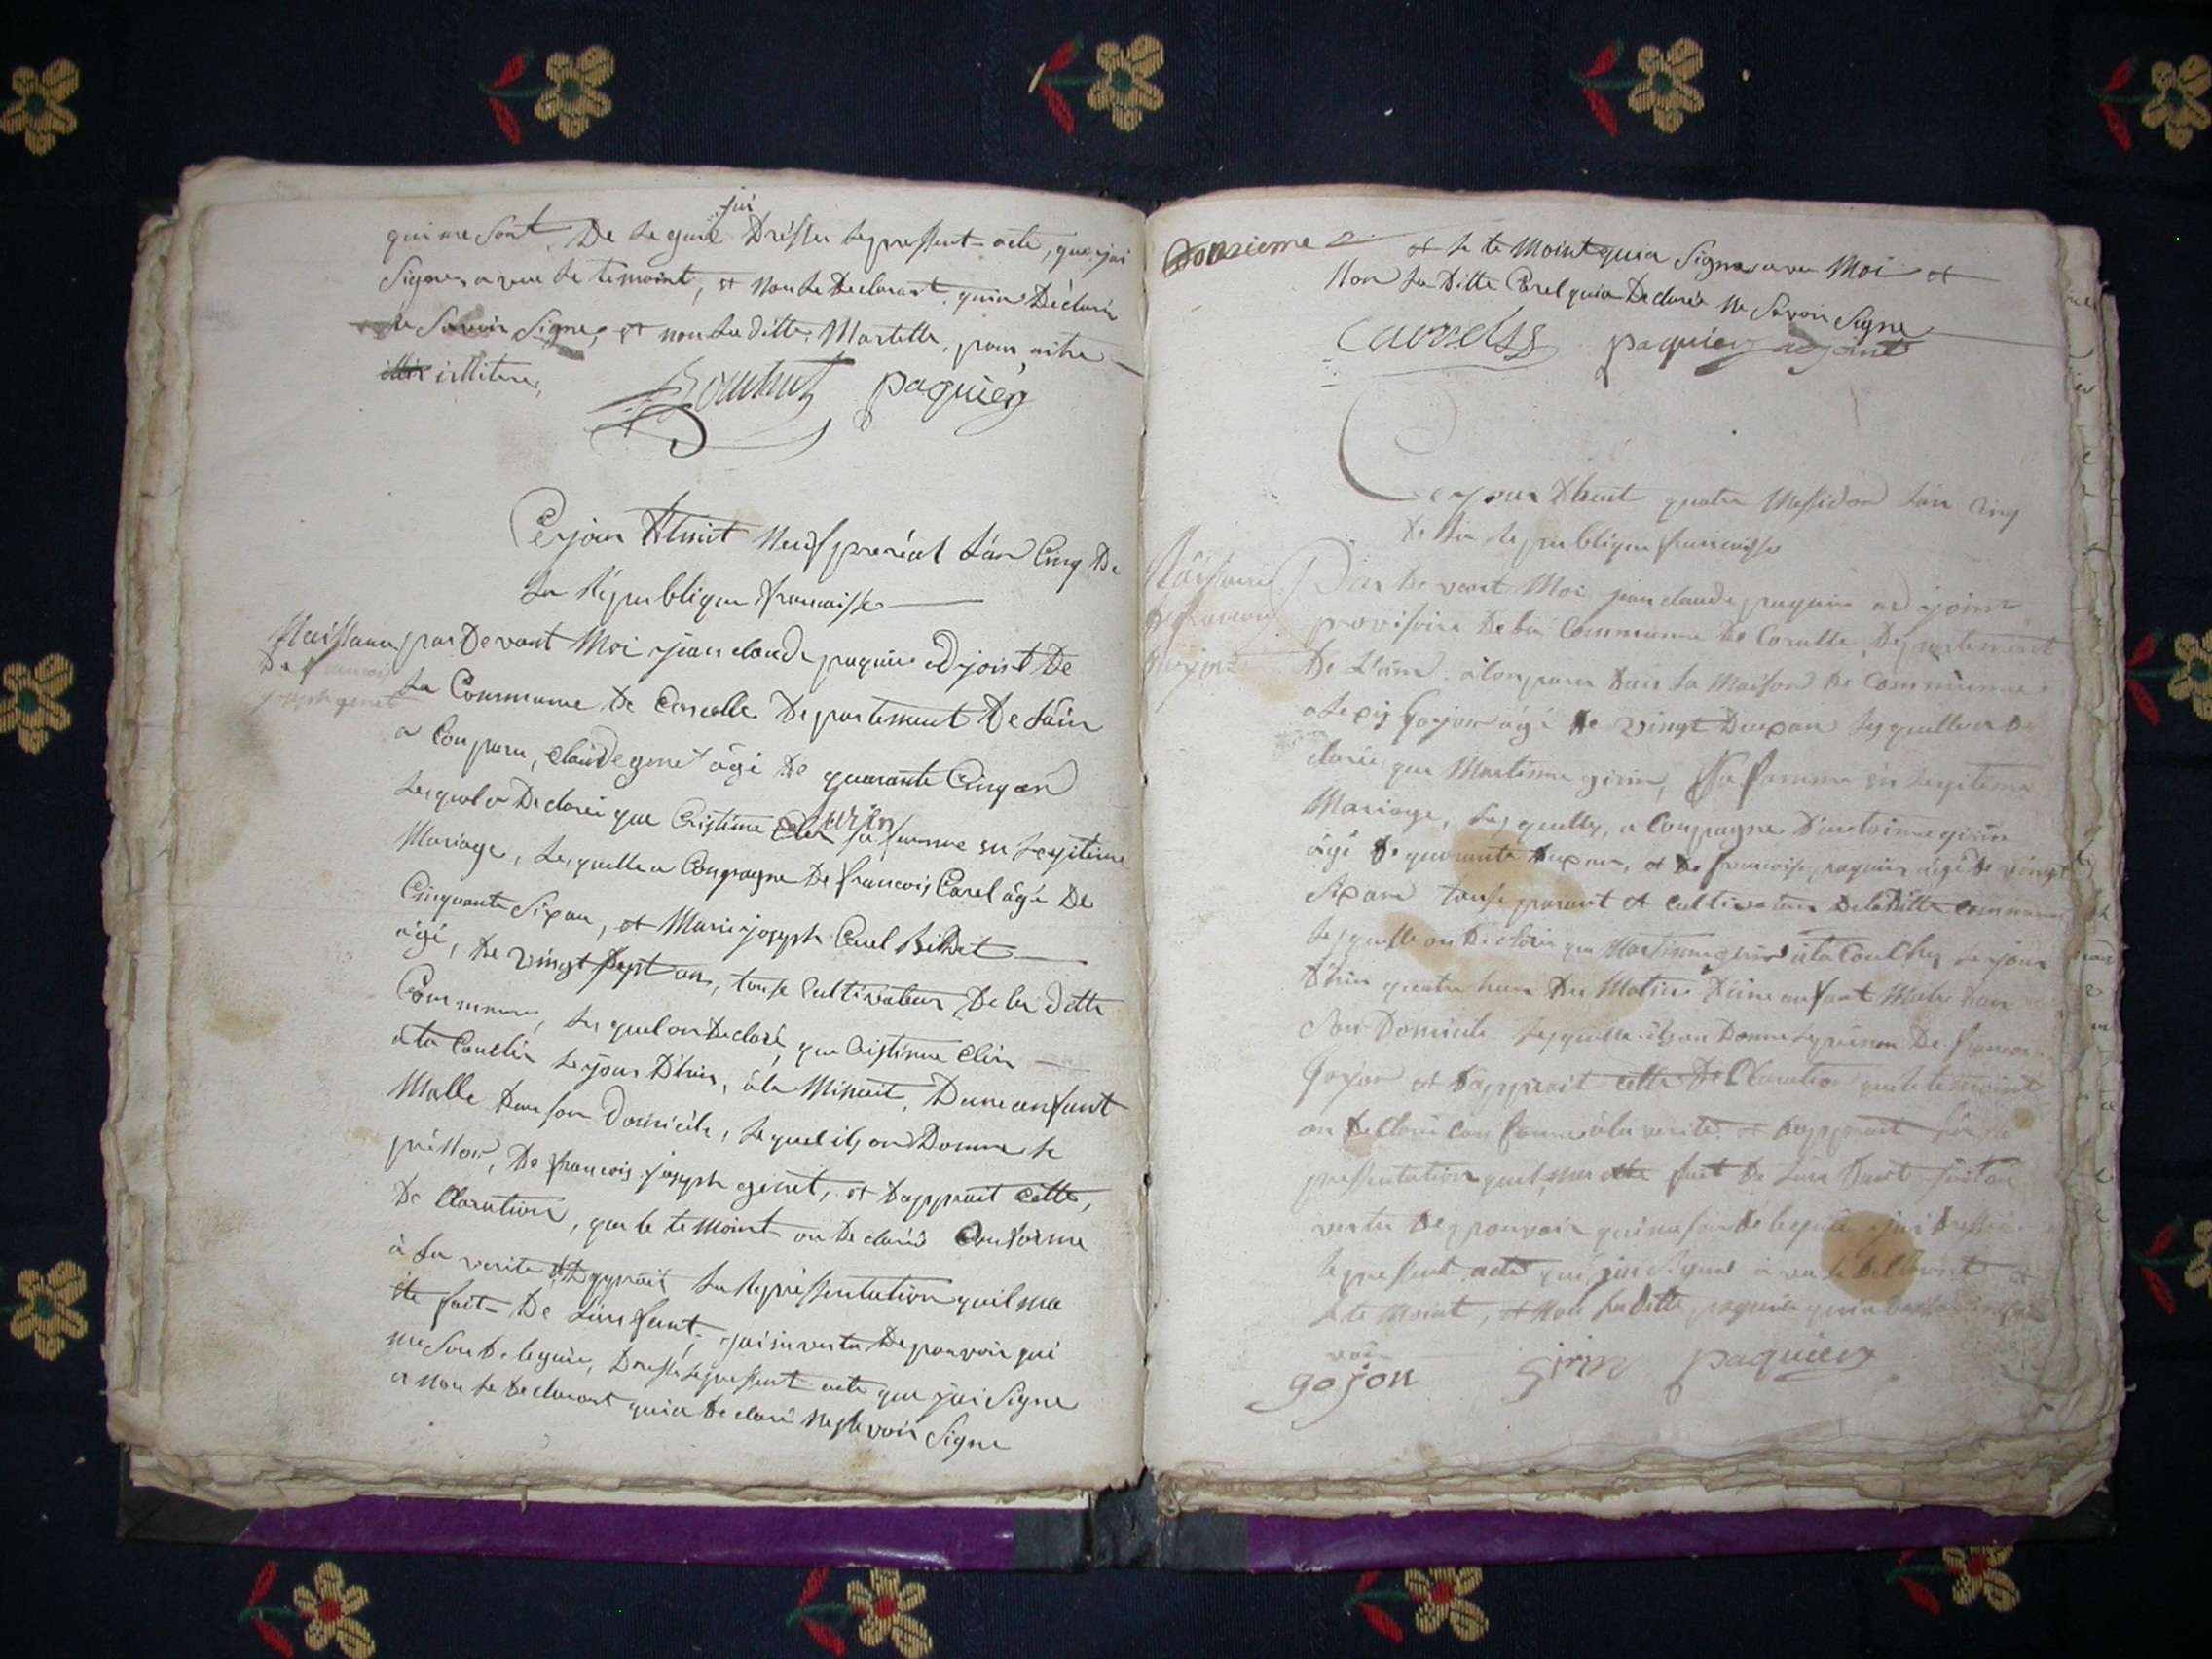 qui me sont De legué jai Dresser le pressent acte, que jai
Signer avec le temoint, et non le Declarant quia Déclaré
ne Savoir Signe, et non la ditte Martelle, pour aitre
illitere,
paquier
Ce jour d'huit neuf prereal l'an Cinq De
la République francaisse
Naissance
De francois
joseph genet
par Devant Moi jean claude paquier adjoint De
la Commune De Corcelle Departement De l'ain
a Comparu, claude genet âgé de quarante Cinq an
Lequel a Declareé que Cristinne Clerin sa femme en Legitime
Mariage, Lequelle a Compagne De francois Carel âgé De
Cinquante Six an, et Marie joseph Carel
âgé, De vingt Sept an, touse Cultivateur De la ditte
Commune, Lequel on Declaré, que Cristinne Clerin
a ta Couchéé le jour D'hui, à la Minuit, Dune anfant
Malle dans son Domicile, Lequel ils on Donne le
prénon, De francois joseph genet, et Dapprait cette,
De Claration, que le temoint on De claréé Conforme
à la verite et Dapprait la Représsentation quil ma
ete fait De L'anfant, jai en vertu De pouvoir qui
me Son De leguée, Dresse le pressent acte que jai Signe
et non le Declarant quia De claré Ne savoir Signe
Douzieme
et le te Moint quia Signe avec Moi et
Non La Ditte Carel quia Declarée Ne Savoir Signe
paquier adjoint
Ce jour d'huit quatre Messidor L'an Cinq
De La Republique francaisse
Naissance
De francois
Gojon
Par De vant Moi jean claude paquier adjoint
provisoire De la Commune De Corcelle, Departement
De L'ain à Comparu Dans La Maison De Commune
Gojon âgé De vingt Deux an Lequelle a De
claréé que Martinne girin, Sa femme en Legitime
Mariage, Lequelle, a Compagne D'antoinne girin
âgé De quarante Deux an, et De francoise paquier âgé De vingt
Six an touse parant et Cultivateur De la Ditte Commune
Lequelle on Declaréé que Martinne girin a ta Couchéé le jour
D'hui quatre heure Du Matin D'une anfant Malle dans
Son Domicile Lequelle ils on Donne le prénon De francois
Gojon et Dapprait cette De Claration que le temoint
on De Claréé Conforme à la verite et Dapprait la
pressentation quil ma ete fait De L'anfant
vertu De pouvoir qui me son De leguée jai Dresse
le pressent acte que jai Signe avec le Declarant et
le te Moint, et Non La Ditte paquier quia Declaréé ne Sa
voir
gojon girin paquier